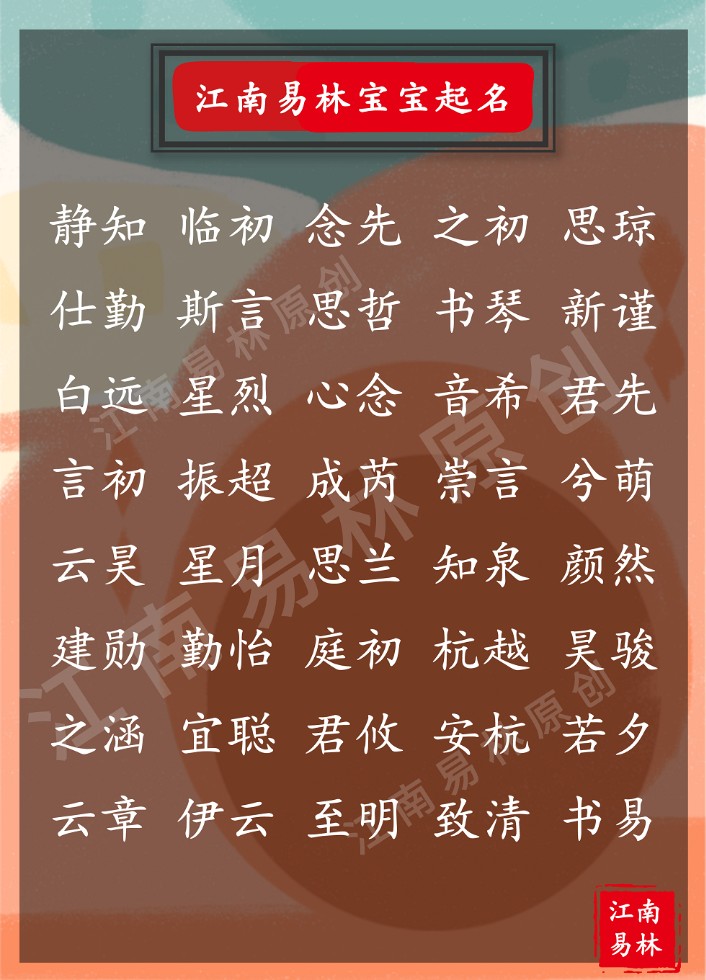 江南易林宝宝起名
静知 临初 念先 之初 思琼
仕勤 斯言 思哲 书琴 新谨
白远 星烈 心念 音希 君先
言初 振超 成芮 崇言 兮萌
云昊 星月 思兰 知泉 颜然
建勋 勤怡 庭初 杭越 昊骏
之涵 宜聪 君攸 安杭 若夕
云章 伊云 至明 致清 书易
江南易林原创
江南易林原创
江南易林原创
江南
易林